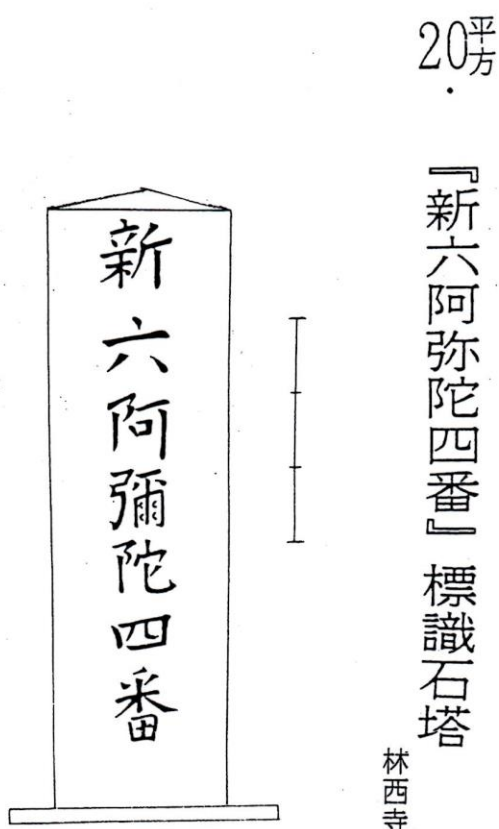 平方
20・『新六阿弥陀四番』標識石塔
林西寺
新六阿彌陀四番